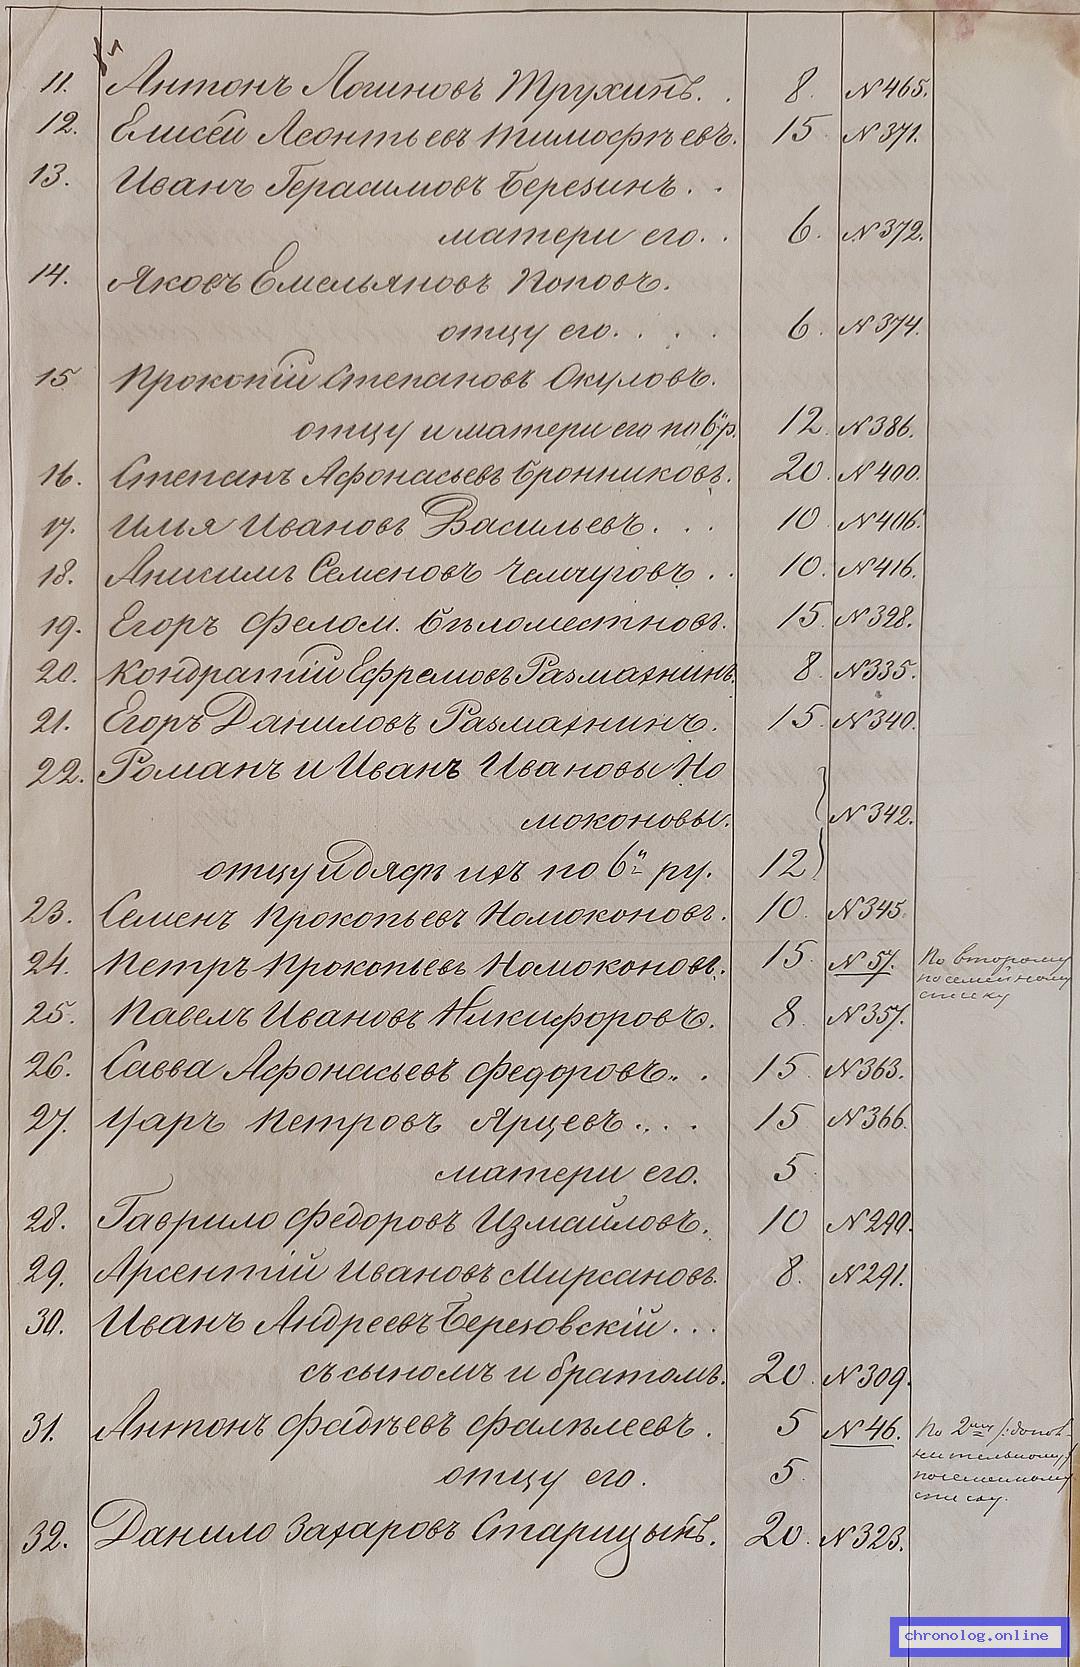 11. Антонъ Логиновъ Трухинъ. . 8. №465.
12. Елисей Леонтьевъ Тимофѣевъ. 15 №371.
13. Иванъ Герасимовъ Березинъ. .
матери его. . 6. №372.
14. Яковъ Емельяновъ Поповъ.
отцу его. . . . 6. №374.
15 Прокопій Степановъ Окуловъ.
отцу и матери его по 6 р. 12. №386.
16. Степанъ Афонасьевъ Бронниковъ. 20. №400.
17. Илья Ивановъ Васильевъ. . . 10 №406.
18. Аникимъ Семеновъ Чемчуговъ . . 10. №416.
19. Егоръ Фелом. Бѣломестновъ. 15 №328.
20. Кондратій Ефремовъ Размахнинъ. 8 №335.
21. Егоръ Даниловъ Размахнинъ. 15. №340.
22. Романъ и Иванъ Ивановы Но
моконовы. №342.
отцу и дядѣ ихъ по 6 ру. 12
23. Семенъ Прокопьевъ Номоконовъ. 10. №345.
24. Петръ Прокопьевъ Номоконовъ. 15. №57. По второму
посемейному
списку
25. Павелъ Ивановъ Никифоровъ. 8. №357.
26. Савва Афонасьевъ Федоровъ. . 15 №363.
27. Уаръ Петровъ Ярцевъ. . . . 15 №366.
матери его. 5
28. Гаврило Федоровъ Измайловъ. 10 №290.
29. Арсентій Ивановъ Мирсановъ. 8. №291.
30. Иванъ Андреевъ Березовскій . . .
съ сыномъ и братомъ. 20. №309.
31. Антонъ Фадѣевъ Фалѣлеевъ . 5 №46. По 2му /:допол-
нительному:/
отцу его. 5. посемейному
списку.
32. Данило Захаровъ Старицынъ. 20. №323.
chronolog.online